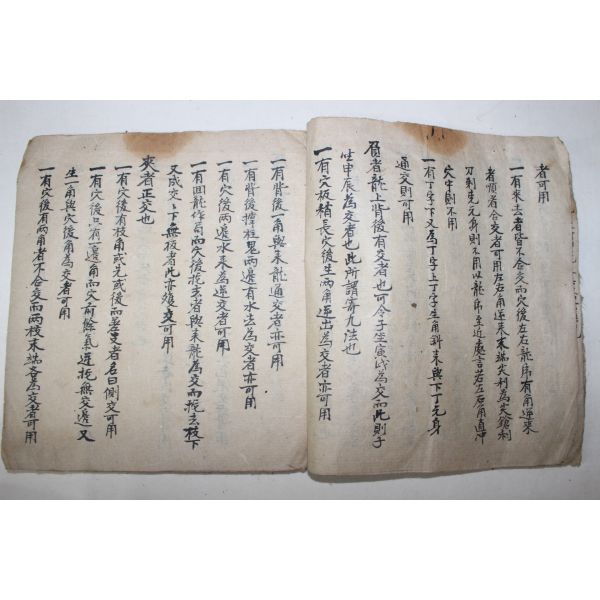 者可用
一有來去者皆不合交而穴後左右龍虎有角逆來
者順者合交者可用左右角逆來末端尖利為尖鎗利
刀刺先元身則不用以龍虎至近處言若左右角直冲
穴中則不用
一有丁字下又為丁字上丁字生角斜來與下丁元身
通交則可用
負者龍上背後有交者也可令子生寅戌為交而此則子
生申辰為交者也此所謂寄九法也
一有穴板精長穴後生兩角逆出為交者亦可用
一有背後一角與來龍通交者亦可用
一有背後撑柱鬼兩邊有水去為交者亦可用
一有穴後兩邊水來為逆交者可用
一有回龍作局而穴後挖去者與來龍為交而挖去枝下
又成交之下無板者此亦殘交可用
爽者正交也
一有穴後有枝角或先或後而並交者名曰側交可用
一有穴後只有一邊角而穴前餘氣逆挖無交邊又
生一角與穴後角為交者可用
一有穴後有兩角者不合交而兩枝末端各為交者可用